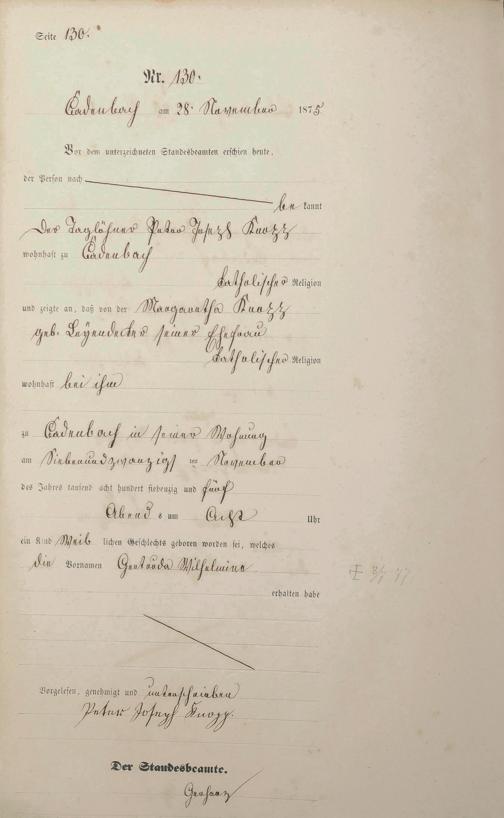 Seite 130.
Nr. 130.
Cadenbach am 28. November 1875
Vor dem unterzeichneten Standesbeamten erschien heute,
der Person nach
be kannt
Der Taglöhner Peter Josef Knopp
wohnhaft zu Cadenbach
katholischer Religion
und zeigte an, daß von der Margaretha Knopp
geb. Leyendecker seiner Ehefrau
katholischer Religion
wohnhaft bei ihm
zu Cadenbach in seiner Wohnung
am Siebenundzwanzigst ten November
des Jahres tausend acht hundert siebenzig und fünf
Abend s um Acht Uhr
ein Kind Weib lichen Geschlechts geboren worden sei, welches
die Vornamen Gertruda Wilhelmine
erhalten habe
Vorgelesen, genehmigt und unterschrieben
Peter Joseph Knopp.
Der Standesbeamte.